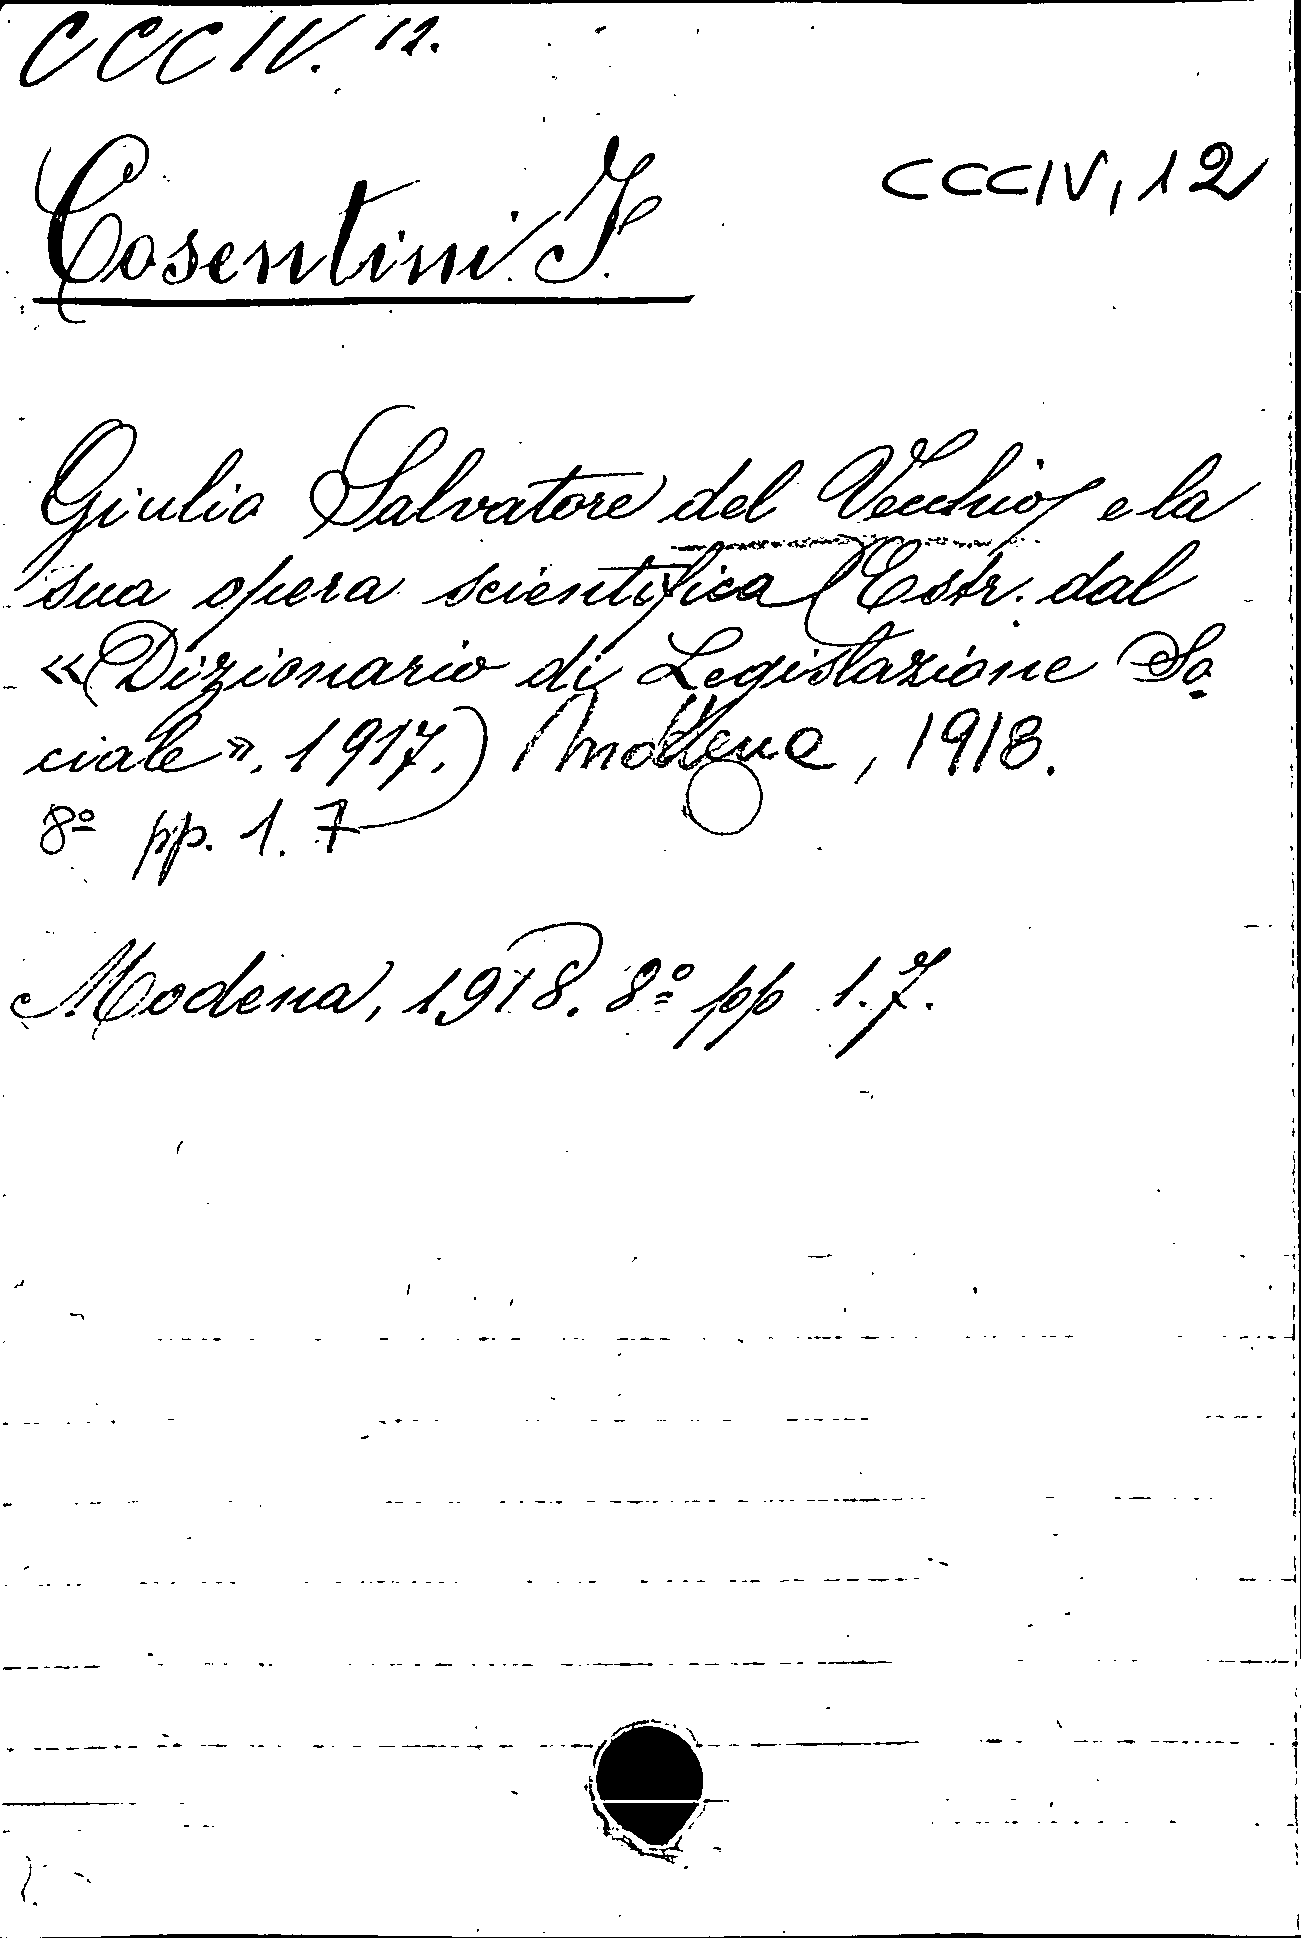 CCCIV. 12.
CCCIV, 12
Cosentini F.
Giulio Salvatore del Vecchio e la
sua opera scientifica (Estr. dal
«Dizionario di Legislazione So
ciale», 1917.) Modena, 1918.
8º pp. 1. 7
Modena, 1918. 8º pp 1. 7.